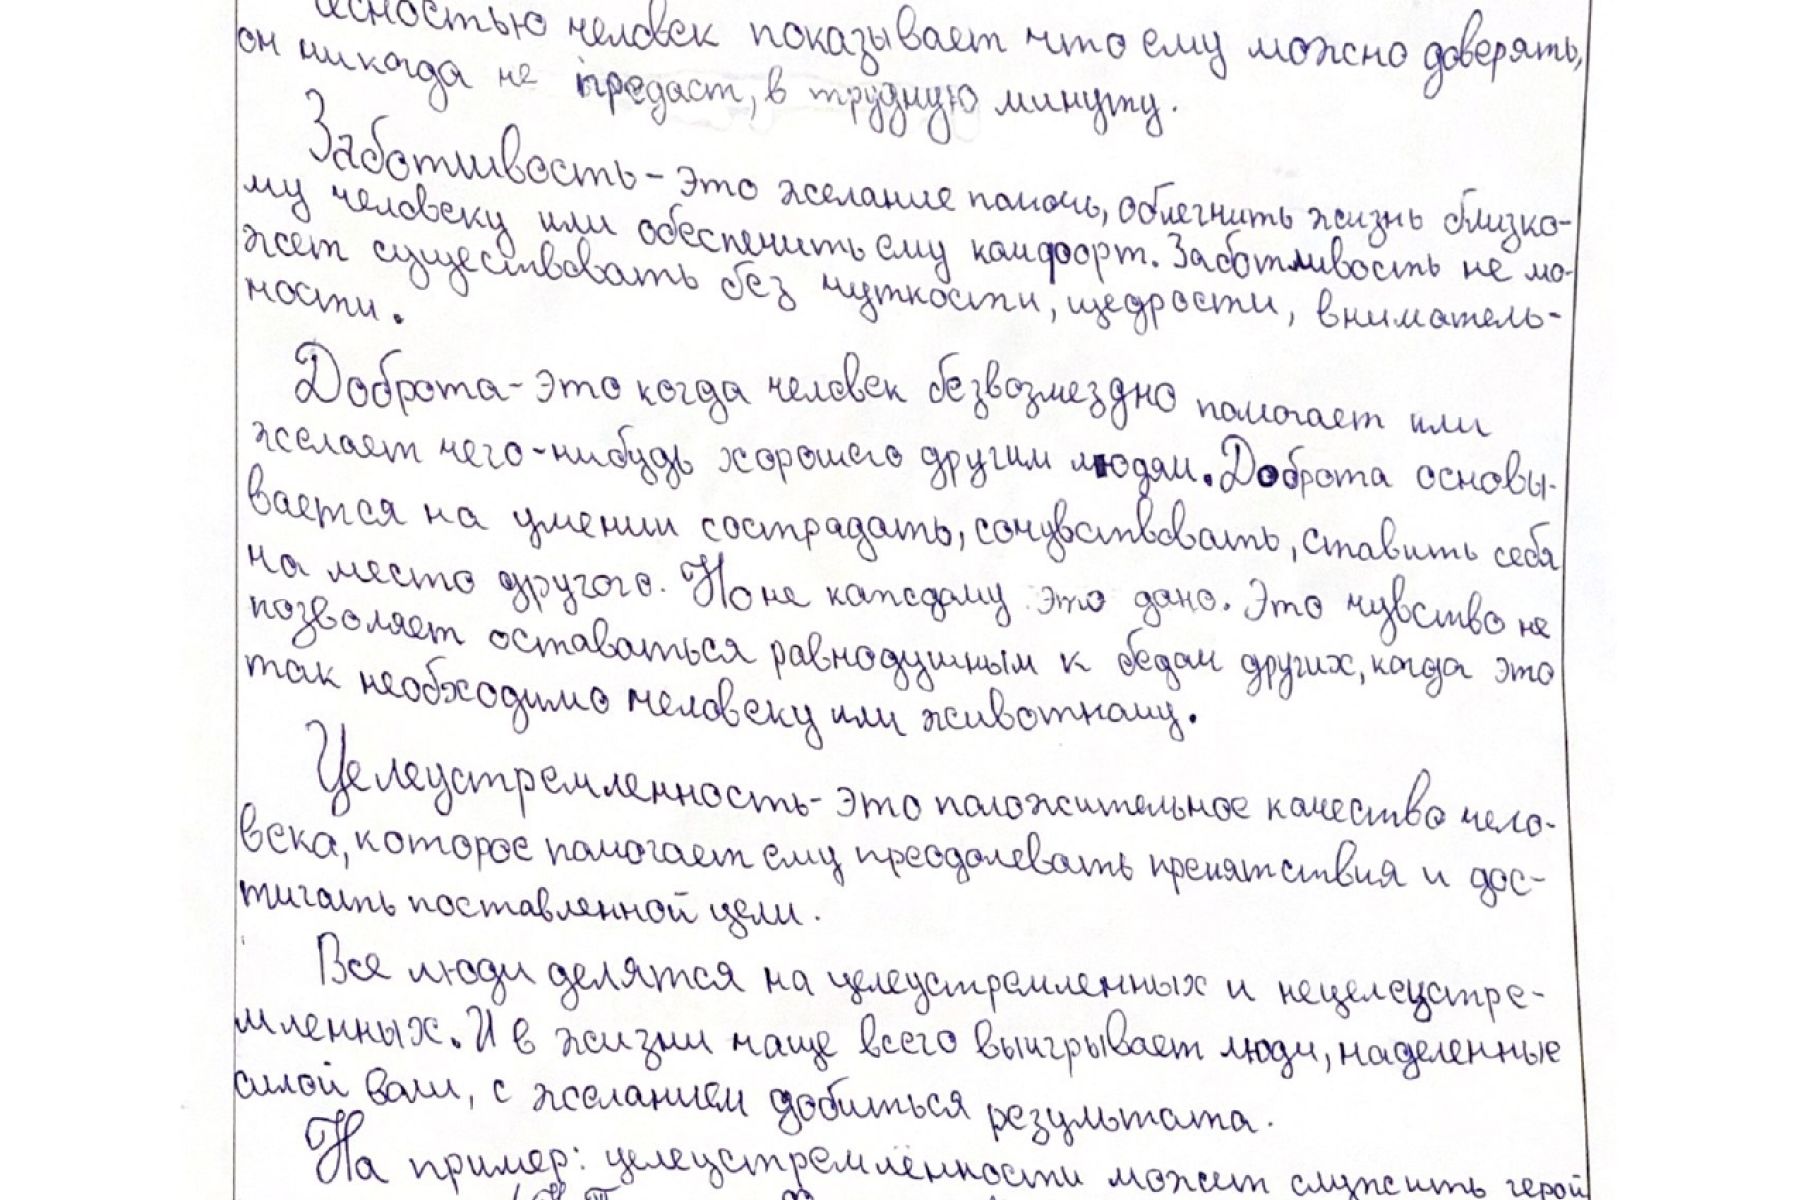 естностью человек показывает что ему можно доверять,
он никогда не предаст, в трудную минуту.
Заботливость - это желание помочь, облегчить жизнь близко-
му человеку или обеспечить ему комфорт. Заботливость не мо-
жет существовать без чуткости, щедрости, вниматель-
ности.
Доброта - это когда человек безвозмездно помогает или
желает чего-нибудь хорошего другим людям. Доброта основы-
вается на умении сострадать, сочувствовать, ставить себя
на место другого. Но не каждому это дано. Это чувство не
позволяет оставаться равнодушным к бедам других, когда это
так необходимо человеку или животному.
Целеустремленность - это положительное качество чело-
века, которое помогает ему преодолевать препятствия и дос-
тигать поставленной цели.
Все люди делятся на целеустремленных и нецелеустре-
мленных. И в жизни чаще всего выигрывает люди, наделенные
силой воли, с желанием добиться результата.
На пример: целеустремлённости может служить герой